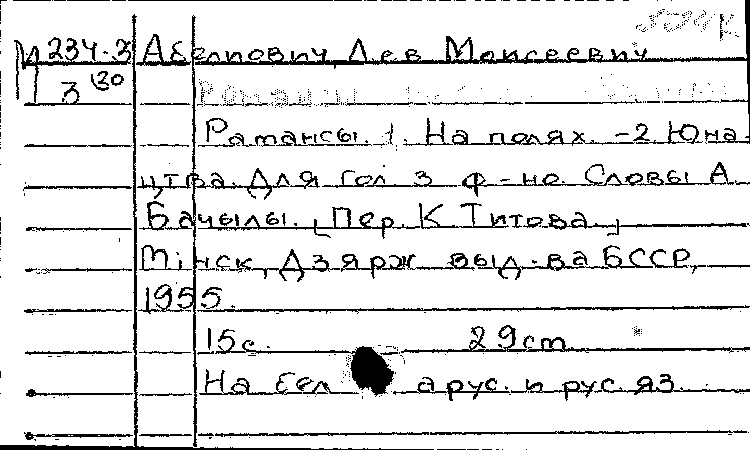 П 234.3 Абелиович, Лев Моисеевич
3 (30
Романсы. 1. На полях. - 2. Юна-
цтва. Для гол. з ф-но. Словы А.
Бачылы. [Пер. К. Титова.]
Мінск, Дзярж. выд-ва БССР,
1955.
15с. 29cm
На бел арус. и рус. яз.